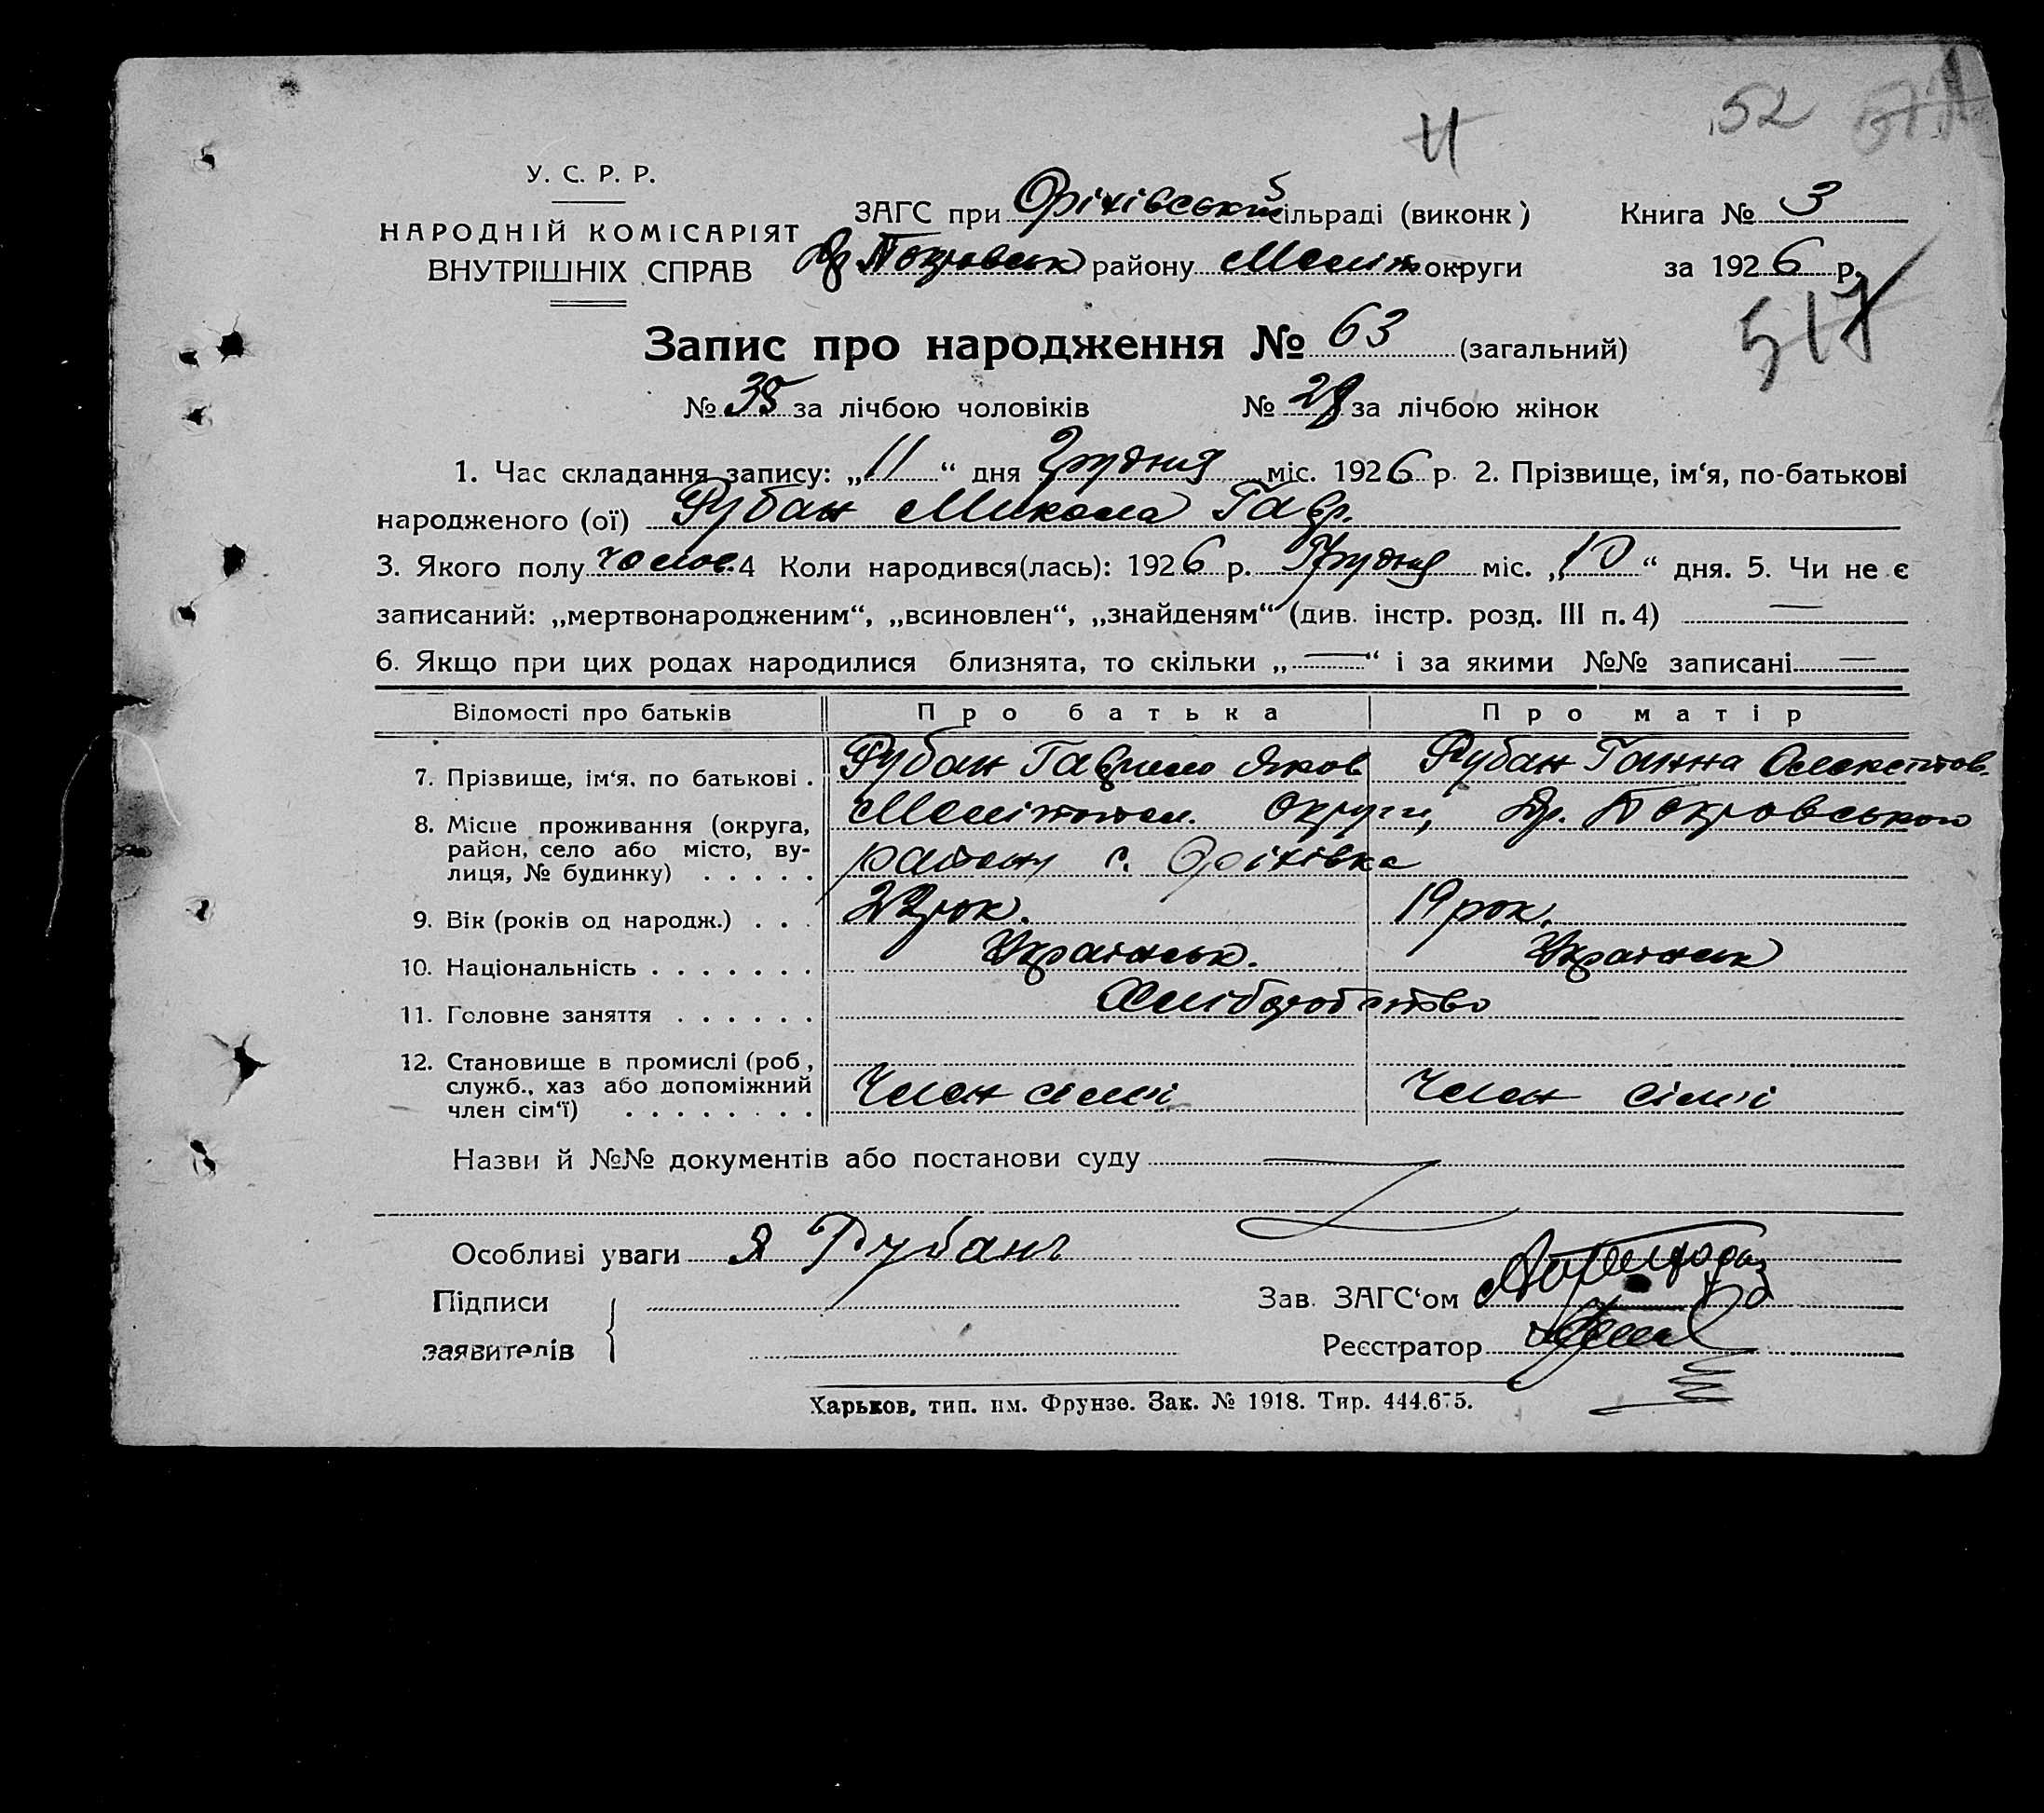 52
И
У. С. Р. Р.
НАРОДНІЙ КОМІСАРІЯТ
ВНУТРІШНІХ СПРАВ
ЗАГС при Оріхівській сільраді (виконк) Книга № 3
Др Покровськ району Меліт округи за 1926 р.
517
Запис про народження № 63 (загальний)
№ 35 за лічбою чоловіків № 28 за лічбою жінок
1. Час складання запису: „11“ дня Грудня міс. 1926 р. 2. Прізвище, ім‘я, по-батькові
народженого (ої) Рубан Микола Гавр.
3. Якого полу чолов. 4 Коли народився(лась): 1926 р. Грудня міс. „10“ дня. 5. Чи не є
записаний: „мертвонародженим“, „всиновлен“, „знайденям“ (див. інстр. розд. III п. 4) —
6. Якщо при цих родах народилися близнята, то скільки „—“ і за якими №№ записані —
Відомості про батьків Про батька Про матір
7. Прізвище, ім‘я, по батькові . Рубан Гаврило Яков Рубан Ганна
8. Місце проживання (округа, район, село або місто, ву-лиця, № будинку) . . . . . Мелітопол. Округи, Др. Покровського
району с. Оріхівка
9. Вік (років од народж.) . . . 22 рок. 19 рок.
10. Національність . . . . . . . Українськ. Українськ
11. Головне заняття . . . . . . Хліборобство
12. Становище в промислі (роб, служб., хаз або допоміжний член сім‘ї) . . . . . . . . Член сімї Член сім'ї
Назви й №№ документів або постанови суду
Особливі уваги Я Рубанъ
Підписи
заявителів
Зав. ЗАГС‘ом
Реєстратор
Харьков, тип. им. Фрунзе. Зак. № 1918. Тир. 444.675.